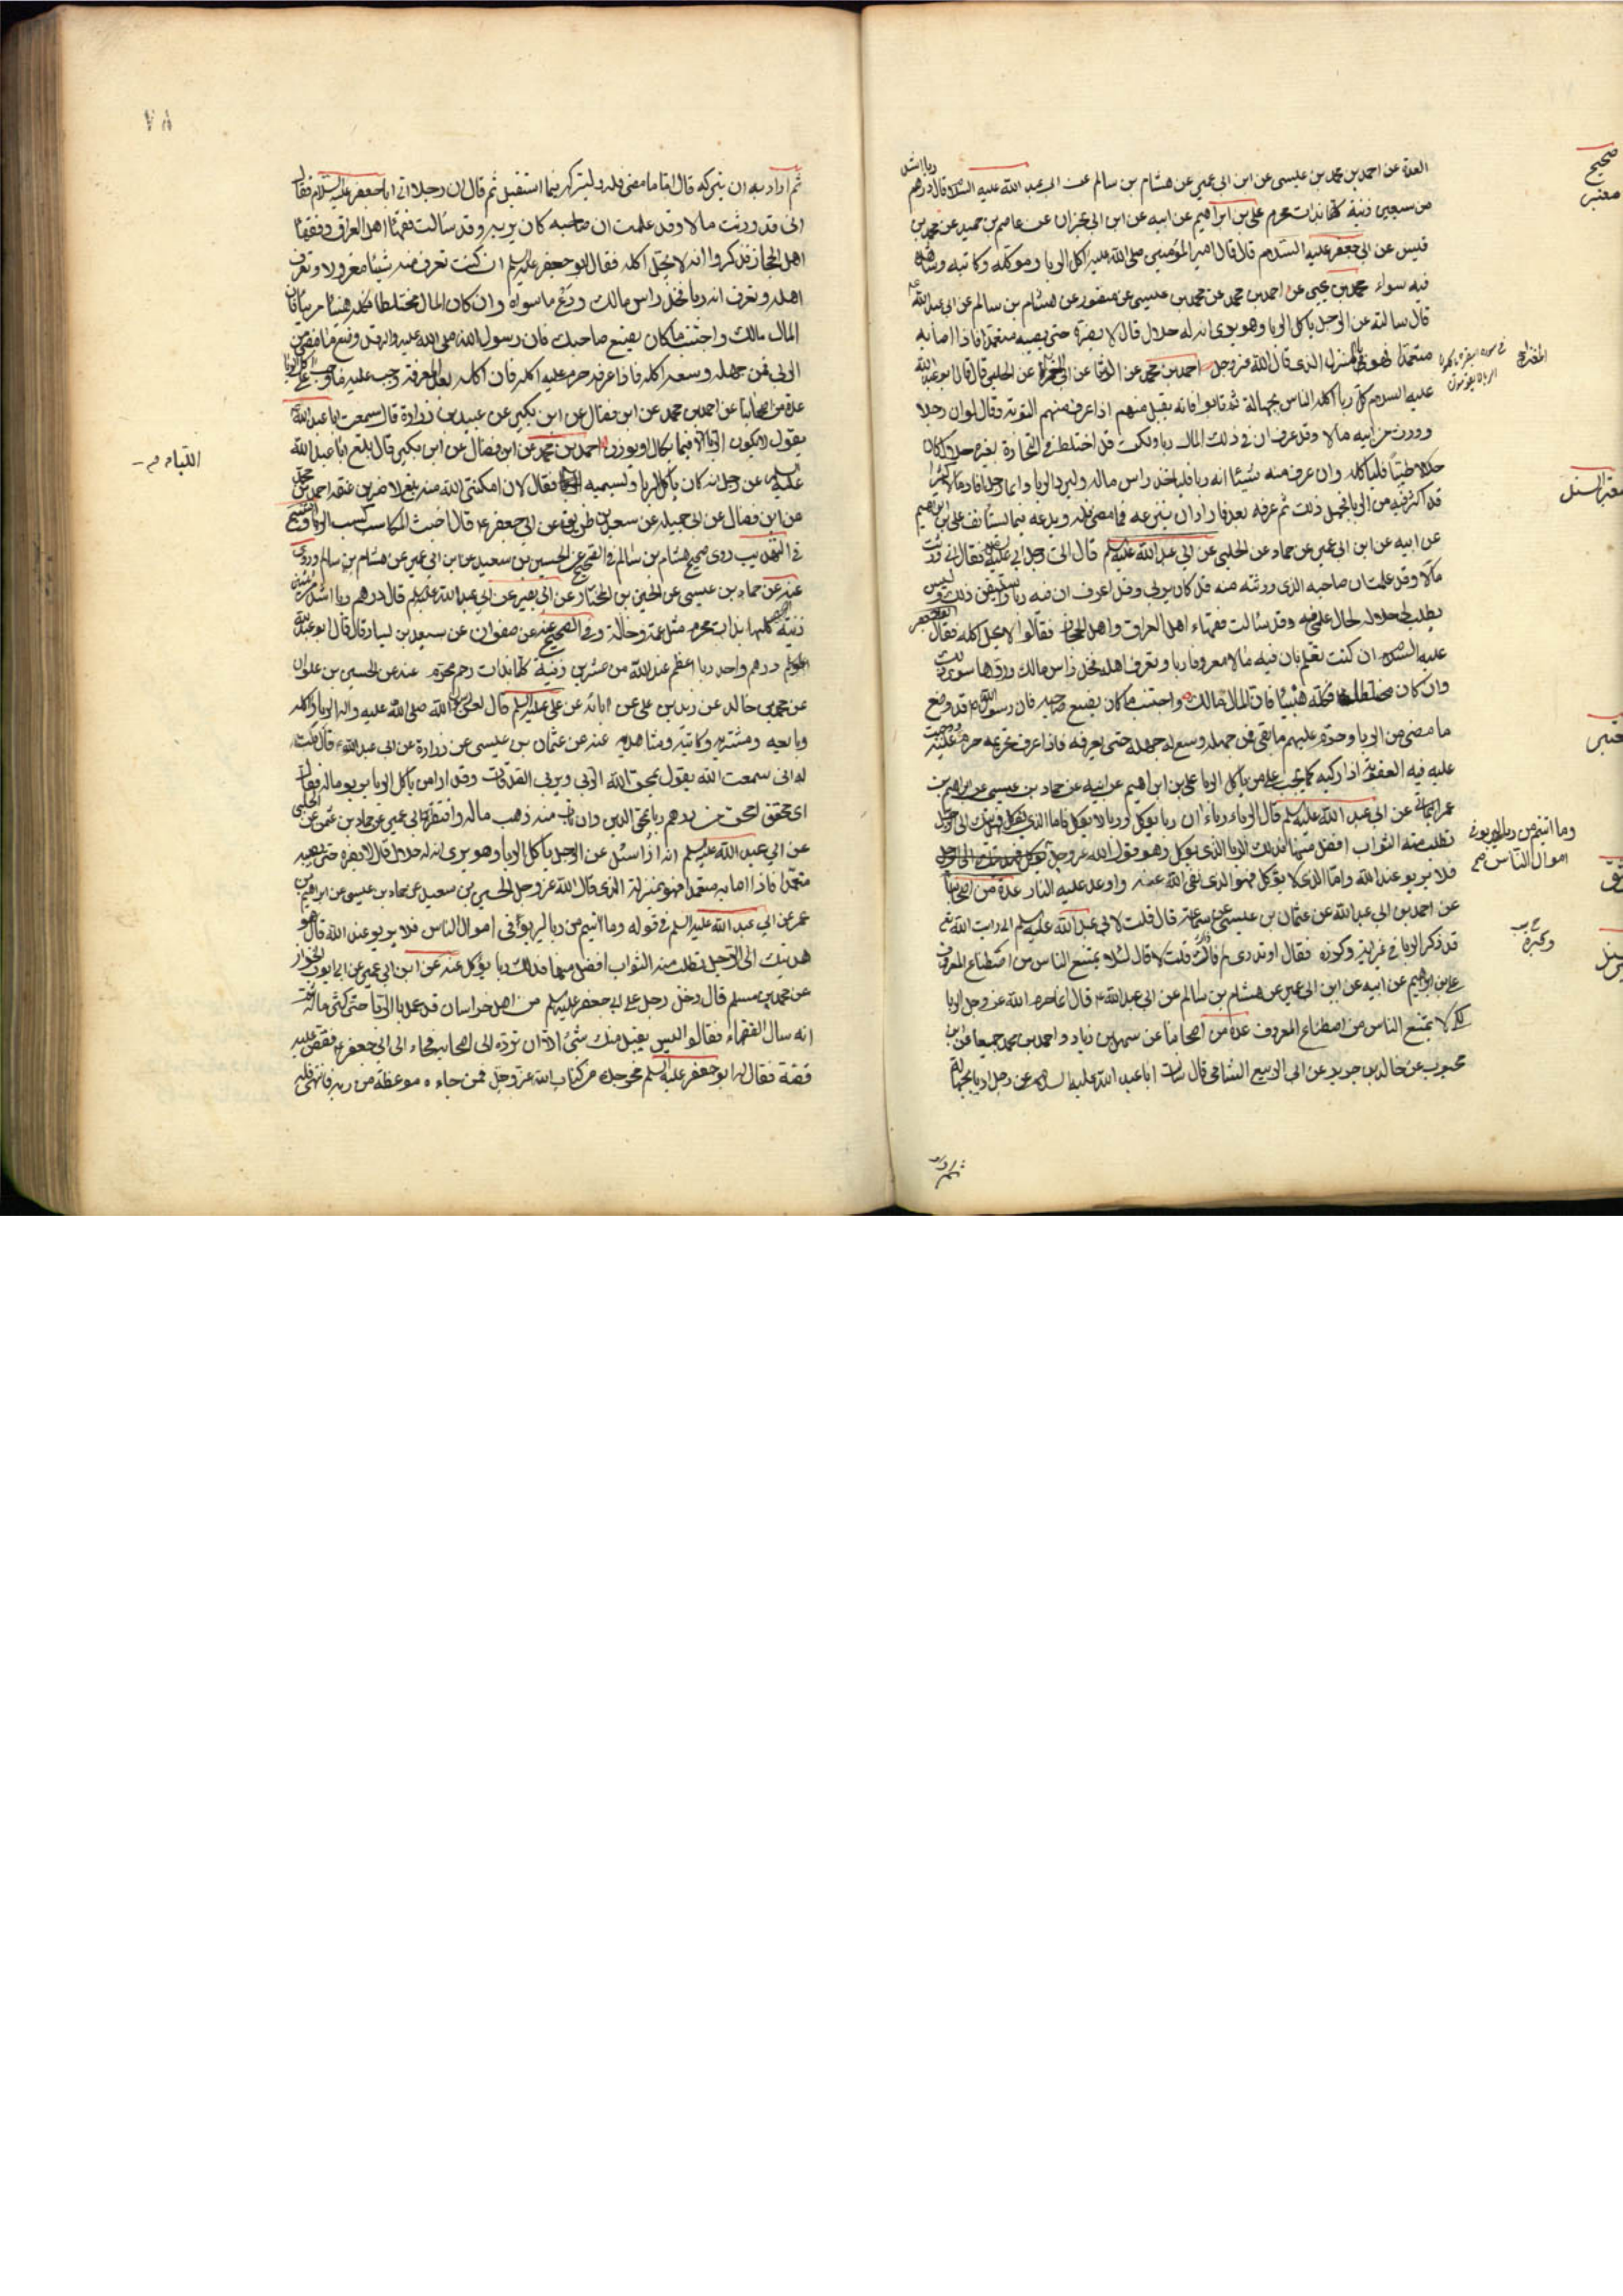 العدة عن احمد بن محمد بن عيسى عن ابن ابى عمير عن هشام بن سالم عن ابى عبد الله عليه السلام قال درهم ربا اشد
من سبعين زنية كلها بذات محرم على بن ابراهيم عن ابيه عن ابن ابى نجران عن عاصم بن حميد عن محمد بن
قيس عن ابى جعفر عليه السلام قال قال امير المؤمنين صلى الله عليه اكل الربا وموكله وكاتبه وشاهده
فيه سواء محمد بن يحيى عن احمد بن محمد عن محمد بن عيسى عن منصور عن هشام بن سالم عن ابى عبد الله
قال سالته عن الرجل ياكل الربا وهو يرى انه له حلال قال لا يضره حتى يصيبه متعمدا فاذا اصابه
متعمدا فهو بالمنزل الذى قال الله عز وجل احمد بن محمد عن الوشا عن ابى المغرا عن الحلبى قال قال ابو عبد الله
عليه السلام كل ربا اكله الناس بجهالة ثم تابوا فانه يقبل منهم اذا عرف منهم التوبة وقال لو ان رجلا
وورث من ابيه مالا وقد عرف ان فى ذلك المال ربا ولكن قد اختلط فى التجارة بغير حلال كان
حلالا طيبا فلياكله وان عرف منه شيئا انه ربا فلياخذ راس ماله وليرد الربا وايما رجل افاد مالا كثيرا
قد اكثر فيه من الربا فجهل ذلك ثم عرفه بعد فاراد ان ينزعه فما مضى فله ويدعه فيما يستانف على بن ابراهيم
عن ابيه عن ابن ابى عمير عن حماد عن الحلبى عن ابى عبد الله عليه السلم قال اتى رجل ابى عليه السلم فقال انى ورثت
مالا وقد علمت ان صاحبه الذى ورثته منه قد كان يربى وقد اعرف ان فيه ربا واستيقن ذلك وليس
يطيب لى حلاله لحال علمى فيه وقد سالت فقهاء اهل العراق واهل الحجاز فقالوا لا يحل اكله فقال ابو جعفر
عليه السلام ان كنت تعلم بان فيه مالا معروفا ربا وتعرف اهله فخذ راس مالك ورد ما سوى ذلك
وان كان مختلطا فكله هنيئا فان المال مالك واجتنب ما كان يصنع صاحبه فان رسول الله قد وضع
ما مضى من الربا وحرم عليهم ما بقى فمن جهله وسع له جهله حتى يعرفه فاذا عرف تحريمه حرم عليه ووجبت
عليه فيه العقوبة اذا ركبه كما يجب على من ياكل الربا على بن ابراهيم عن ابيه عن حماد بن عيسى عن ابراهيم بن
عمر اليمانى عن ابى عبد الله عليه السلم قال الربا رباءان ربا يوكل وربا لا يوكل فاما الذى يوكل فهديتك الى الرجل
تطلب منه الثواب افضل منها فذلك الربا الذى يوكل وهو قول الله عز وجل
فلا يربو عند الله واما الذى لا يوكل فهو الذى نهى الله عنه واوعد عليه النار عدة من اصحابنا
عن احمد بن ابى عبد الله عن عثمان بن عيسى عن سماعة قال قلت لابى عبد الله عليه السلم انى رايت الله
قد ذكر الربا فى غير اية وكرره فقال اوتدرى لم ذاك قلت لا قال لئلا يمتنع الناس من اصطناع المعروف
على بن ابراهيم عن ابيه عن ابن ابى عمير عن هشام بن سالم عن ابى عبد الله قال انما حرم الله عز وجل الربا
لكيلا يمتنع الناس من اصطناع المعروف عدة من اصحابنا عن سهل بن زياد واحمد بن محمد جميعا عن ابن
محبوب عن خالد بن جرير عن ابى الربيع الشامى قال سالت ابا عبد الله عليه السلام عن رجل اربا بجهالة
ثم اراد
صحيح
معتبر
وما اتيتم من ربا ليربو فى
اموال الناس صح
ثم اراد به ان يتركه قال اما ما مضى فله وليتركه فيما استقبل ثم قال ان رجلا اتى ابا جعفر عليه السلام فقال
انى قد ورثت مالا وقد علمت ان صاحبه كان يربى وقد سالت فقهاء اهل العراق وفقهاء
اهل الحجاز فذكروا انه لا يحل اكله فقال ابو جعفر عليه السلم ان كنت تعرف منه شيئا معزولا وتعرف
اهله وتعرف انه ربا فخذ راس مالك ودع ما سواه وان كان المال مختلطا فكله هنيئا مريئا فان
المال مالك واجتنب ما كان يصنع صاحبك فان رسول الله صلى الله عليه واله قد وضع ما مضى من
الربى فمن جهله وسعه اكله فاذا عرفه حرم عليه اكله فان اكله بعد المعرفة وجب عليه ما وجب على اكل الربا
عدة من اصحابنا عن احمد بن محمد عن ابن فضال عن ابن بكير عن عبيد بن زرارة قال سمعت ابا عبد الله
يقول لا يكون الربا الا فيما يكال او يوزن احمد بن محمد عن ابن فضال عن ابن بكير قال بلغ ابا عبد الله
عليه السلم عن رجل انه كان ياكل الربا ويسميه اللبا فقال لان امكننى الله منه لاضربن عنقه احمد بن محمد
عن ابن فضال عن ابى جميله عن سعد بن طريف عن ابى جعفر قال اخبث المكاسب كسب الربا الشيخ
فى التهذيب روى صحيح هشام بن سالم فى الصحيح عن الحسين بن سعيد عن ابن ابى عمير عن هشام بن سالم وروى
عنه عن حماد بن عيسى عن الحسين بن المختار عن ابى بصير عن ابى عبد الله عليه السلم قال درهم ربا اشد من ثلثين
زنية كلها بذات محرم مثل عمة وخالة وفى الصحيح عنه عن صفوان عن سعيد بن يسار قال قال ابو عبد الله
عليه السلم درهم واحد ربا اعظم عند الله من عشرين زنية كلها بذات رحم محرم عنه عن الحسين بن علوان
عن عمرو بن خالد عن زيد بن على عن ابائه عن على عليه السلم قال لعن رسول الله صلى الله عليه واله الربا واكله
وبايعه ومشتريه وكاتبه وشاهديه عنه عن عثمان بن عيسى عن زرارة عن ابى عبد الله قال قلت
له انى سمعت الله يقول يمحق الله الربى ويربى الصدقات وقد ارى من ياكل الربا يربو ماله فقال
اى محق امحق من درهم ربا يمحق الدين وان تاب منه ذهب ماله وافتقر ابن ابى عمير عن حماد بن عثمن عن الحلبى
عن ابى عبد الله عليه السلم انه اذا سئل عن الرجل ياكل الربا وهو يرى انه له حلال قال لا يضره حتى يصيبه
متعمدا فاذا اصابه متعمدا فهو بمنزلة الذى قال الله عز وجل الحسين بن سعيد عن حماد بن عيسى عن ابراهيم بن
عمر عن ابى عبد الله عليه السلم فى قوله وما اتيتم من ربا ليربوا فى اموال الناس فلا يربو عند الله قال هو
هديتك الى الرجل تطلب منه الثواب افضل منها فذلك ربا يوكل عنه عن ابن ابى عمير عن ابى ايوب الخزاز
عن محمد بن مسلم قال دخل رجل على ابى جعفر عليه السلم من اهل خراسان قد عمل بالربا حتى كثر ماله ثم
انه سال الفقهاء فقالوا ليس يقبل منك شئ الا ان ترده الى اصحابه فجاء الى ابى جعفر فقص عليه
قصته فقال له ابو جعفر عليه السلم مخرجك من كتاب الله عز وجل فمن جاءه موعظة من ربه فانتهى فله